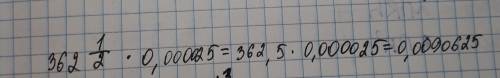 362 1/2 · 0,000025 = 362,5 · 0,000025 = 0,0090625